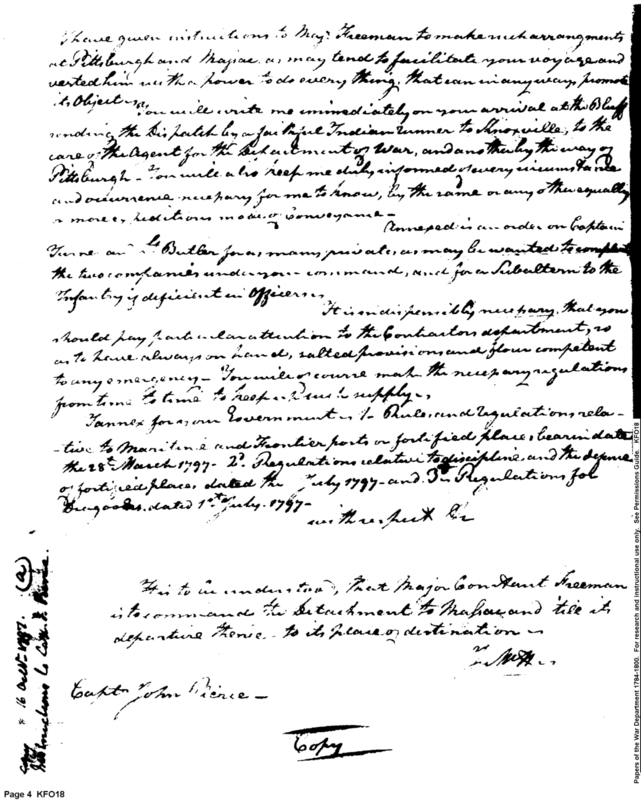 I have given instructions to Majr. Freeman to make such arrangments
at Pittsburgh and Massac as may tend to facilitate your voyage and
vested him with a power to do every thing, that can in any way promote
its Object.
You will write me immediately on your arrival at the Bluff
sending the Dispatch by a faithful Indian runner to Knoxville, to the
care of the Agent for the Department of War, and another by the way of
Pittsburgh - You will also keep me duly informed of every circumstance
and occurrence necessary for me to know, by the same or any other equally
or more expeditious mode of Conveyance -
Annexed is an order on Captain
Butler for as many privates as may be wanted to complete
the two companies under your command, and for a Subaltern to the
Infantry if deficient in Officers
It is indispensibly necessary that you
should pay particular attention to the Contractors department, so
as to have always on hand, salted provisions and flour competent
to any emergency - You will of course make the necessary regulations
from time to time to keep up such supply -
I annex for your Government 1st Rules and regulations rela-
-tive to Maritime and Frontier posts or fortified places bearing date
the 28th March 1797 - 2d. Regulations relative to discipline, and the defense
of fortified places, dated the July 1797 - and 3d Regulations for
Dragoons, dated 1st July. 1797 -
with respect &c
It is to be understood, that Major Constant Freeman
is to command the Detachment to Massac and 'till its
departure thence to its place of destination
McH
Capt. John Pierce -
Copy
Copy
16 Octr. 1797. (a)
Instructions to Capt. J. Pierce.
Page 4 KFO18
Papers of the War Department 1784-1800. For research and instructional use only. See Permissions Guide. KFO18